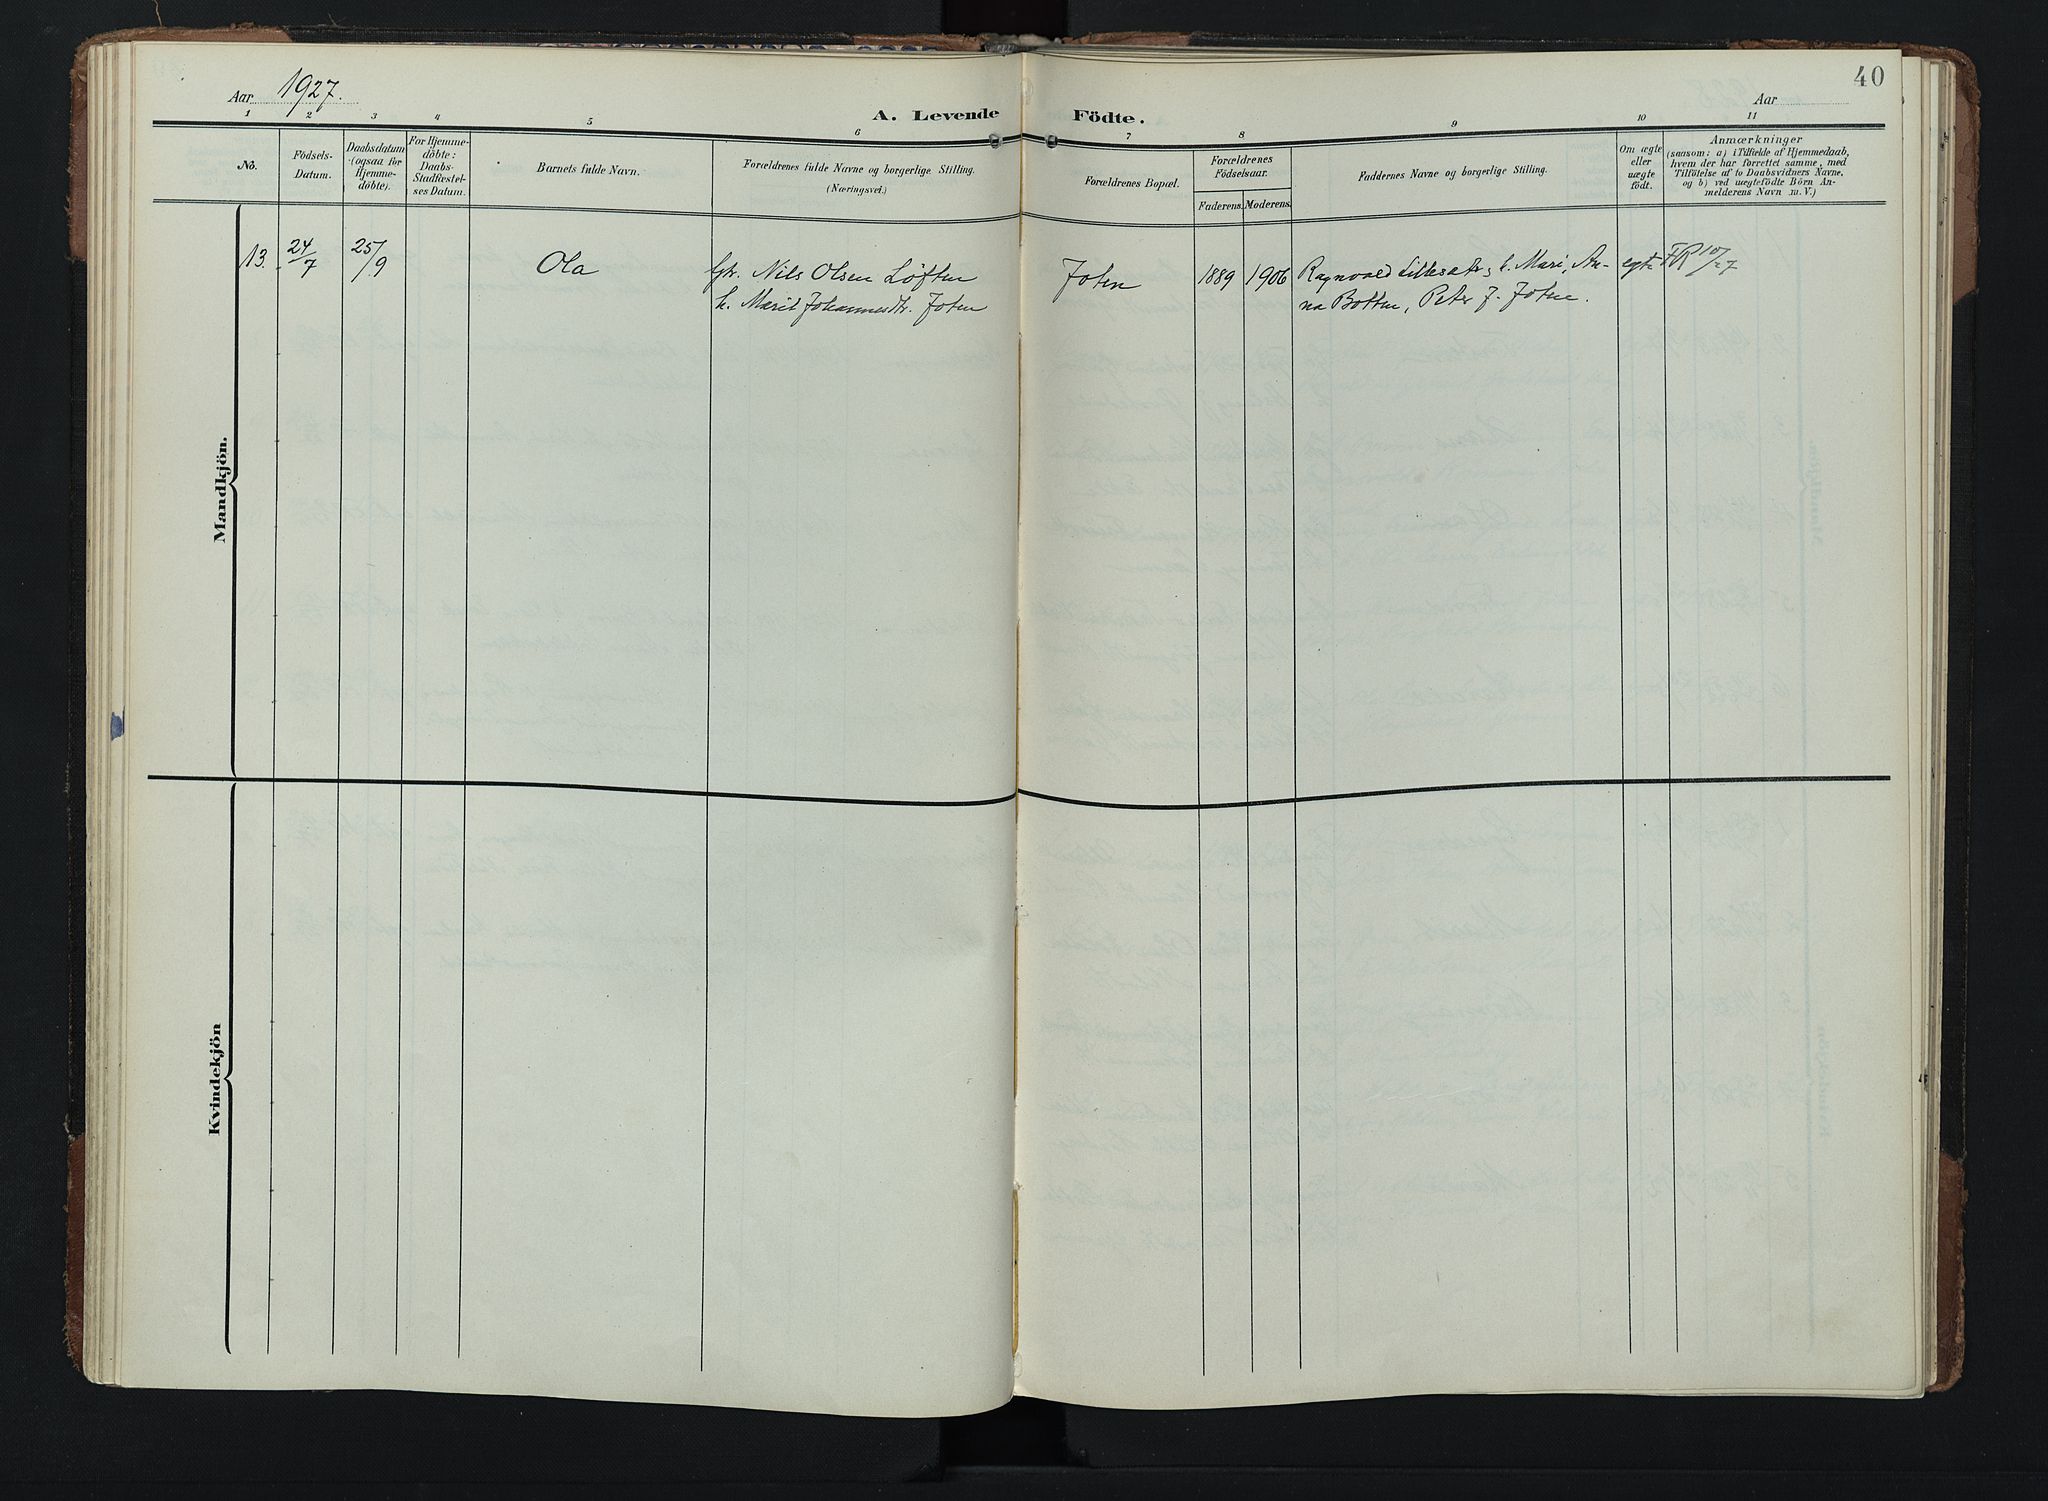 Aar 1927.
A. Levende Födte.
Aar
40
1 2 3 4 5 6 7 8 9 10 11
No.
Födsels-
Datum.
Daabsdatum
(ogsaa for
Hjemme-
döbte).
For Hjemme-
döbte:
Daabs-
Stadfæstel-
ses Datum.
Barnets fulde Navn.
Forældrenes fulde Navne og borgerlige Stilling.
(Næringsvei.)
Forældrenes Bopæl.
Forældrenes
Födselsaar.
Faderens. Moderens.
Faddernes Navne og borgerlige Stilling.
Om ægte
eller
uægte
födt.
Anmærkninger
(saasom: a) i Tilfælde af Hjemmedaab,
hvem der har forrettet samme, med
Tilföielse af to Daabsvidners Navne,
og b) ved uægtefödte Börn An-
melderens Navn m. V.)
Mandkjön.
13. 24/7 25/9 Ola
Nils Olsen Løften
h. Marit Johannesdtr. Joten
Joten
1889 1906
Ragnvald Lillesætr, h. Mari, An-
na Botten, Peter J. Joten.
egte FR 10/7-27
Kvindekjön